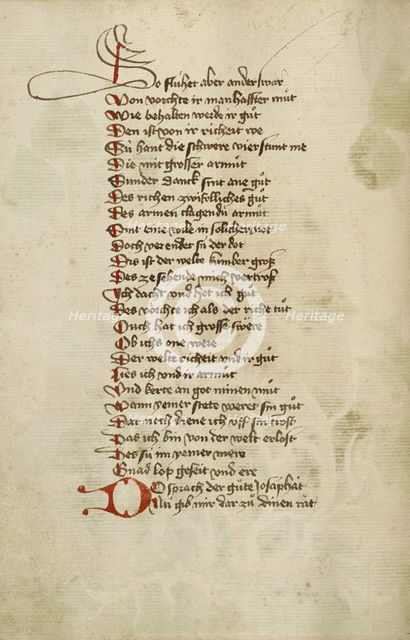 So fluhet aber anderswar
Von vorchte ir manhaffter mut
Wie behalten werde ir gůt
Den ist von ir richeit we
Zů hant die schwere vierstunt me
Die mit grosser armůt
Sunder danck sint ane gůt
Des richen zwifelliches gůt
Des armen clagendů armůt
Sint eine wile in solicher not
Doch verendet sů der dot
Dis ist der welte kumber groß
Des ze sehende mich verdroß
Ich dacht und het ich gůt
Des vorchte ich als der riche tůt
Ouch hat ich grosse swere
Ob ichs one were
Der welte richeit und ir gůt
Lies ich und ir armůt
Und kerte an got minen můt
Wann yemer stete weret sin gůt
Dar noch diene ich uff sin trost
Das ich bin von der welt erlost
Des sů im yemer mere
Gnad lop geseit und ere
Do sprach der gůte Josaphat
Nů gib mir dar zů dinen rat
Heritage
Heritage
Heritage
Heritage